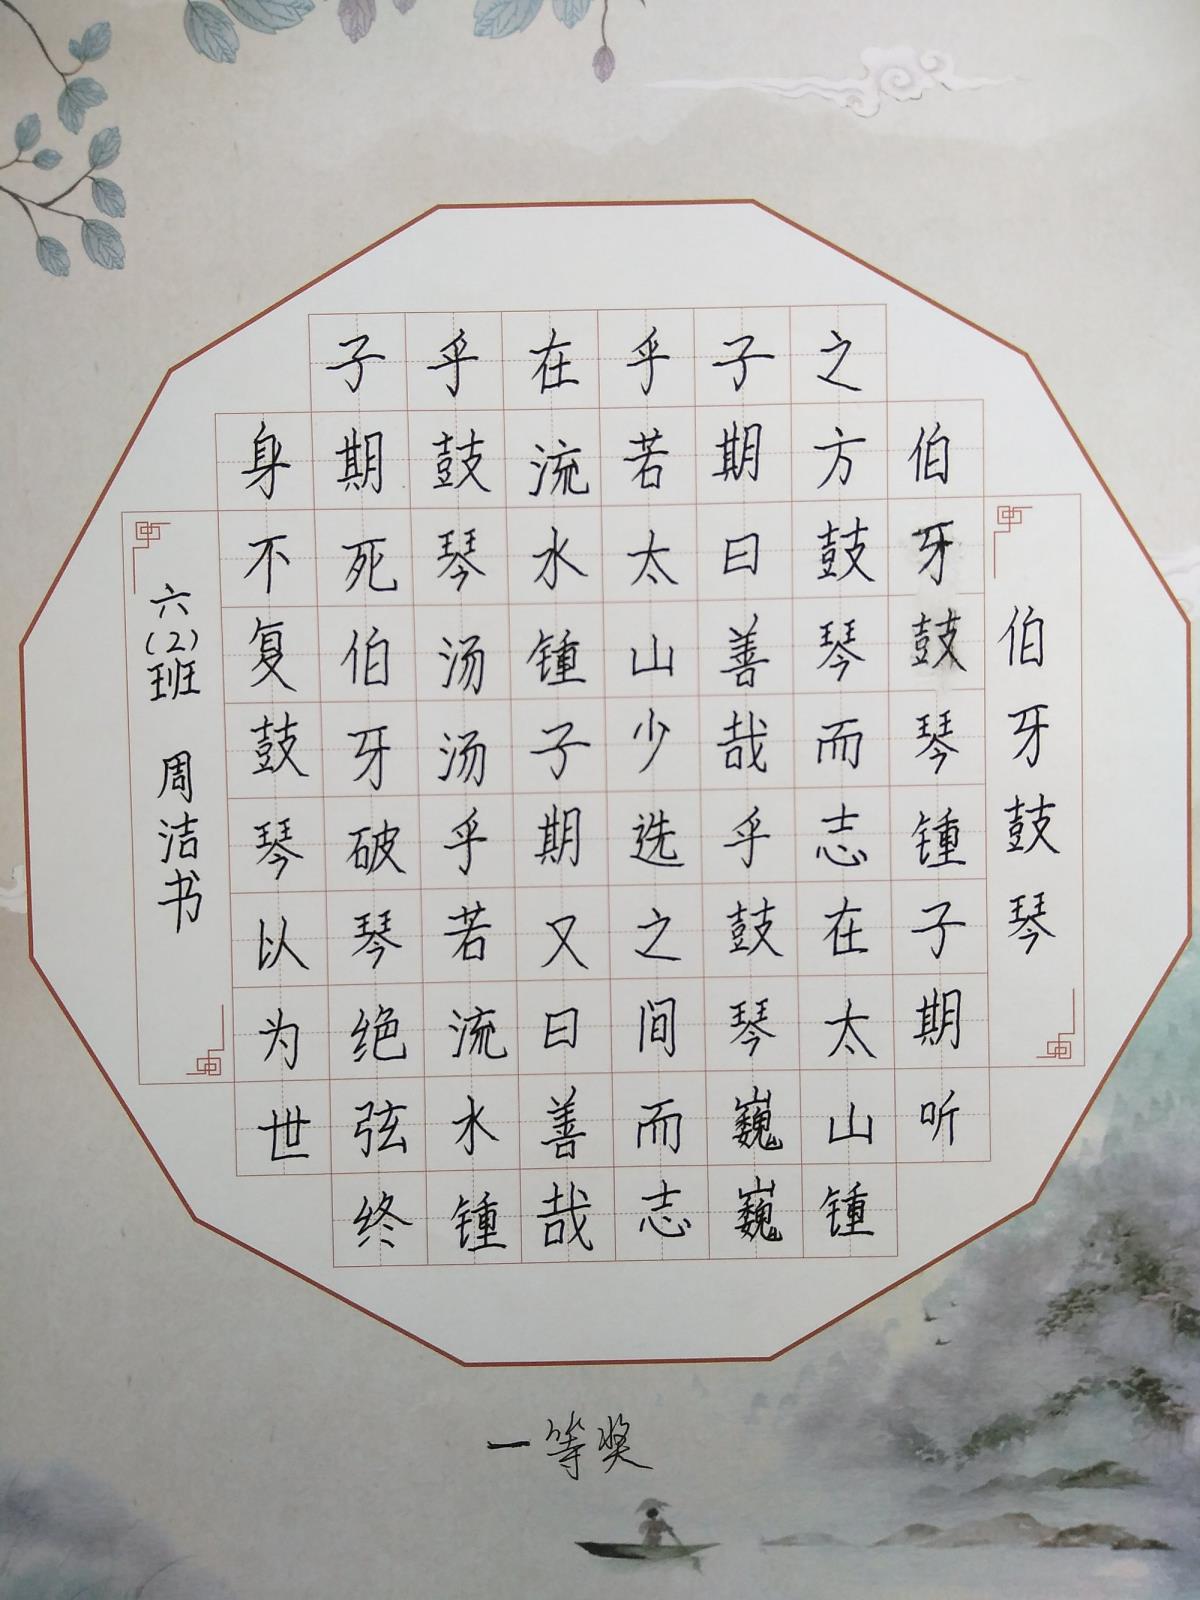 伯牙鼓琴
伯牙鼓琴锺子期听
之方鼓琴而志在太山锺
子期曰善哉乎鼓琴巍巍
乎若太山少选之间而志
在流水锺子期又曰善哉
乎鼓琴汤汤乎若流水锺
子期死伯牙破琴绝弦终
身不复鼓琴以为世
六(2)班 周洁书
一等奖